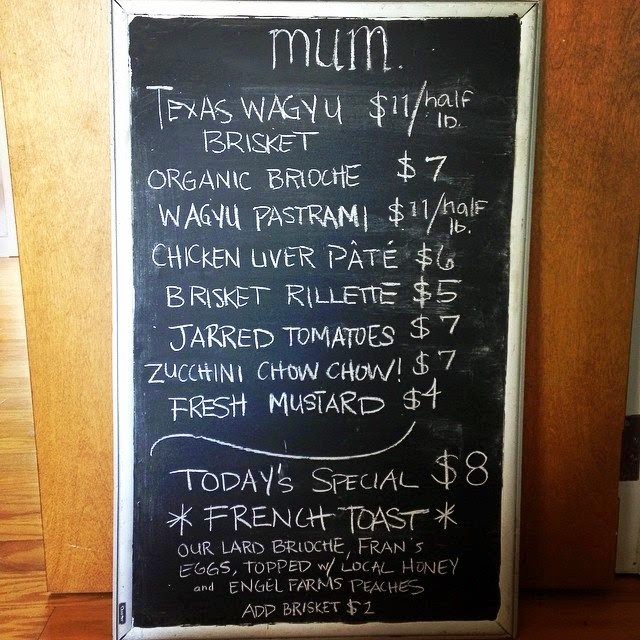 mum.
TEXAS WAGYU $11/half lb.
BRISKET
ORGANIC BRIOCHE $7
WAGYU PASTRAMI $11/half lb.
CHICKEN LIVER PÂTÉ $6
BRISKET RILLETTE $5
JARRED TOMATOES $7
ZUCCHINI CHOW CHOW! $7
FRESH MUSTARD $4
TODAY'S SPECIAL $8
* FRENCH TOAST *
OUR LARD BRIOCHE, FRAN'S
EGGS, TOPPED w/ LOCAL HONEY
and ENGEL FARMS PEACHES
ADD BRISKET $2